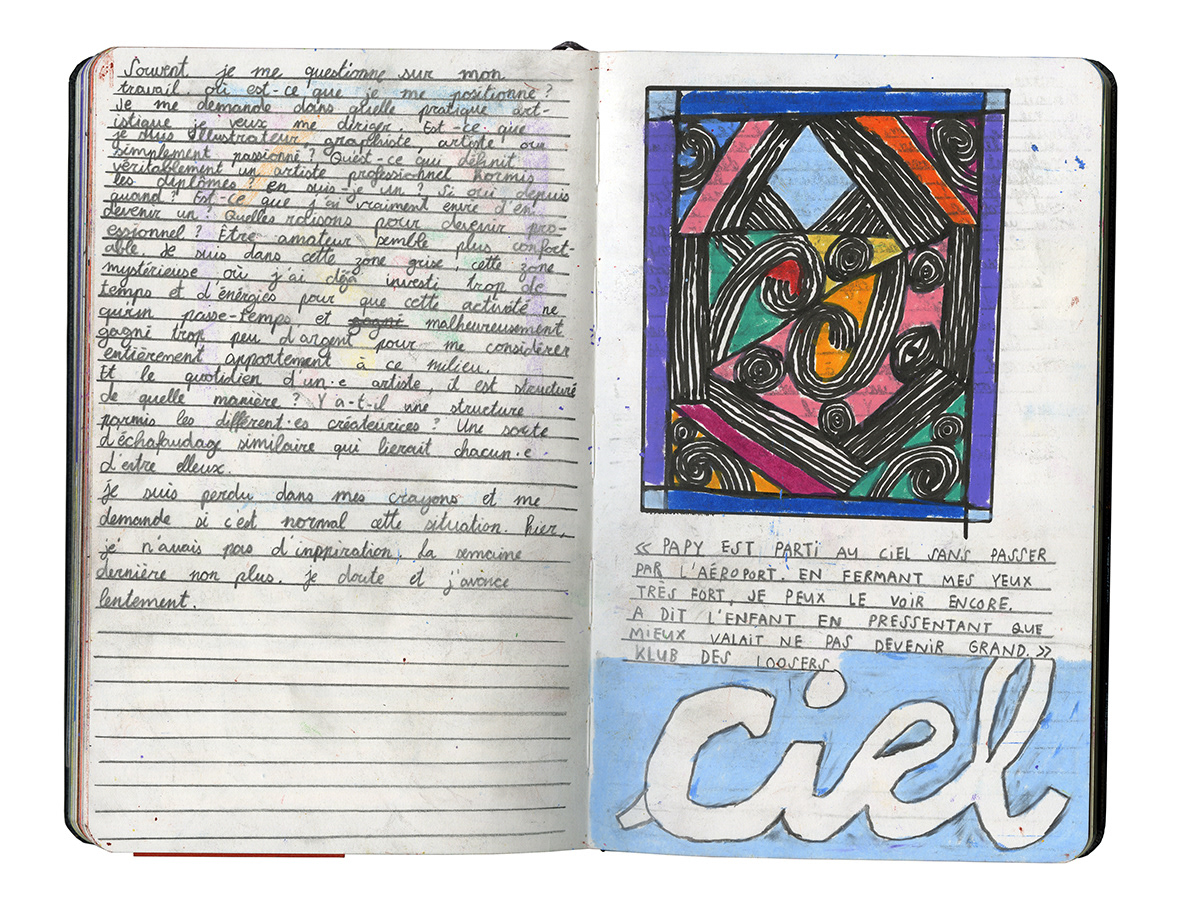 Souvent je me questionne sur mon
travail. Où est-ce que je me positionne ?
Je me demande dans quelle pratique art-
istique je veux me diriger. Est-ce que
je suis illustrateur, graphiste, artiste ou
simplement passionné ? Qu'est-ce qui définit
véritablement un artiste professionnel hormis
les diplômes ? en suis-je un ? Si oui depuis
quand ? Est-ce que j'ai vraiment envie d'en
devenir un ? Quelles raisons pour devenir pro-
essionnel ? Être amateur semble plus confort-
able Je suis dans cette zone grise, cette zone
mystérieuse où j'ai déjà investi trop de
temps et d'énérgies pour que cette activité ne
qu'un passe-temps et gagni malheureusement
gagni trop peu d'argent pour me considérer
entièrement appartement à ce milieu.
Et le quotidien d'un·e artiste, il est structuré
de quelle manière ? Y a-t-il une structure
parmis les différent·es créateurices ? Une sorte
d'échafaudage similaire qui lierait chacun·e
d'entre elleux.
je suis perdu dans mes crayons et me
demande si c'est normal cette situation. hier,
je n'avais pas d'inppiration, la semaine
dernière non plus. je doute et j'avance
lentement.
« PAPY EST PARTI AU CIEL SANS PASSER
PAR L'AÉROPORT. EN FERMANT MES YEUX
TRÈS FORT, JE PEUX LE VOIR ENCORE.
A DIT L'ENFANT EN PRESSENTANT QUE
MIEUX VALAIT NE PAS DEVENIR GRAND. »
KLUB DES LOOSERS
ciel